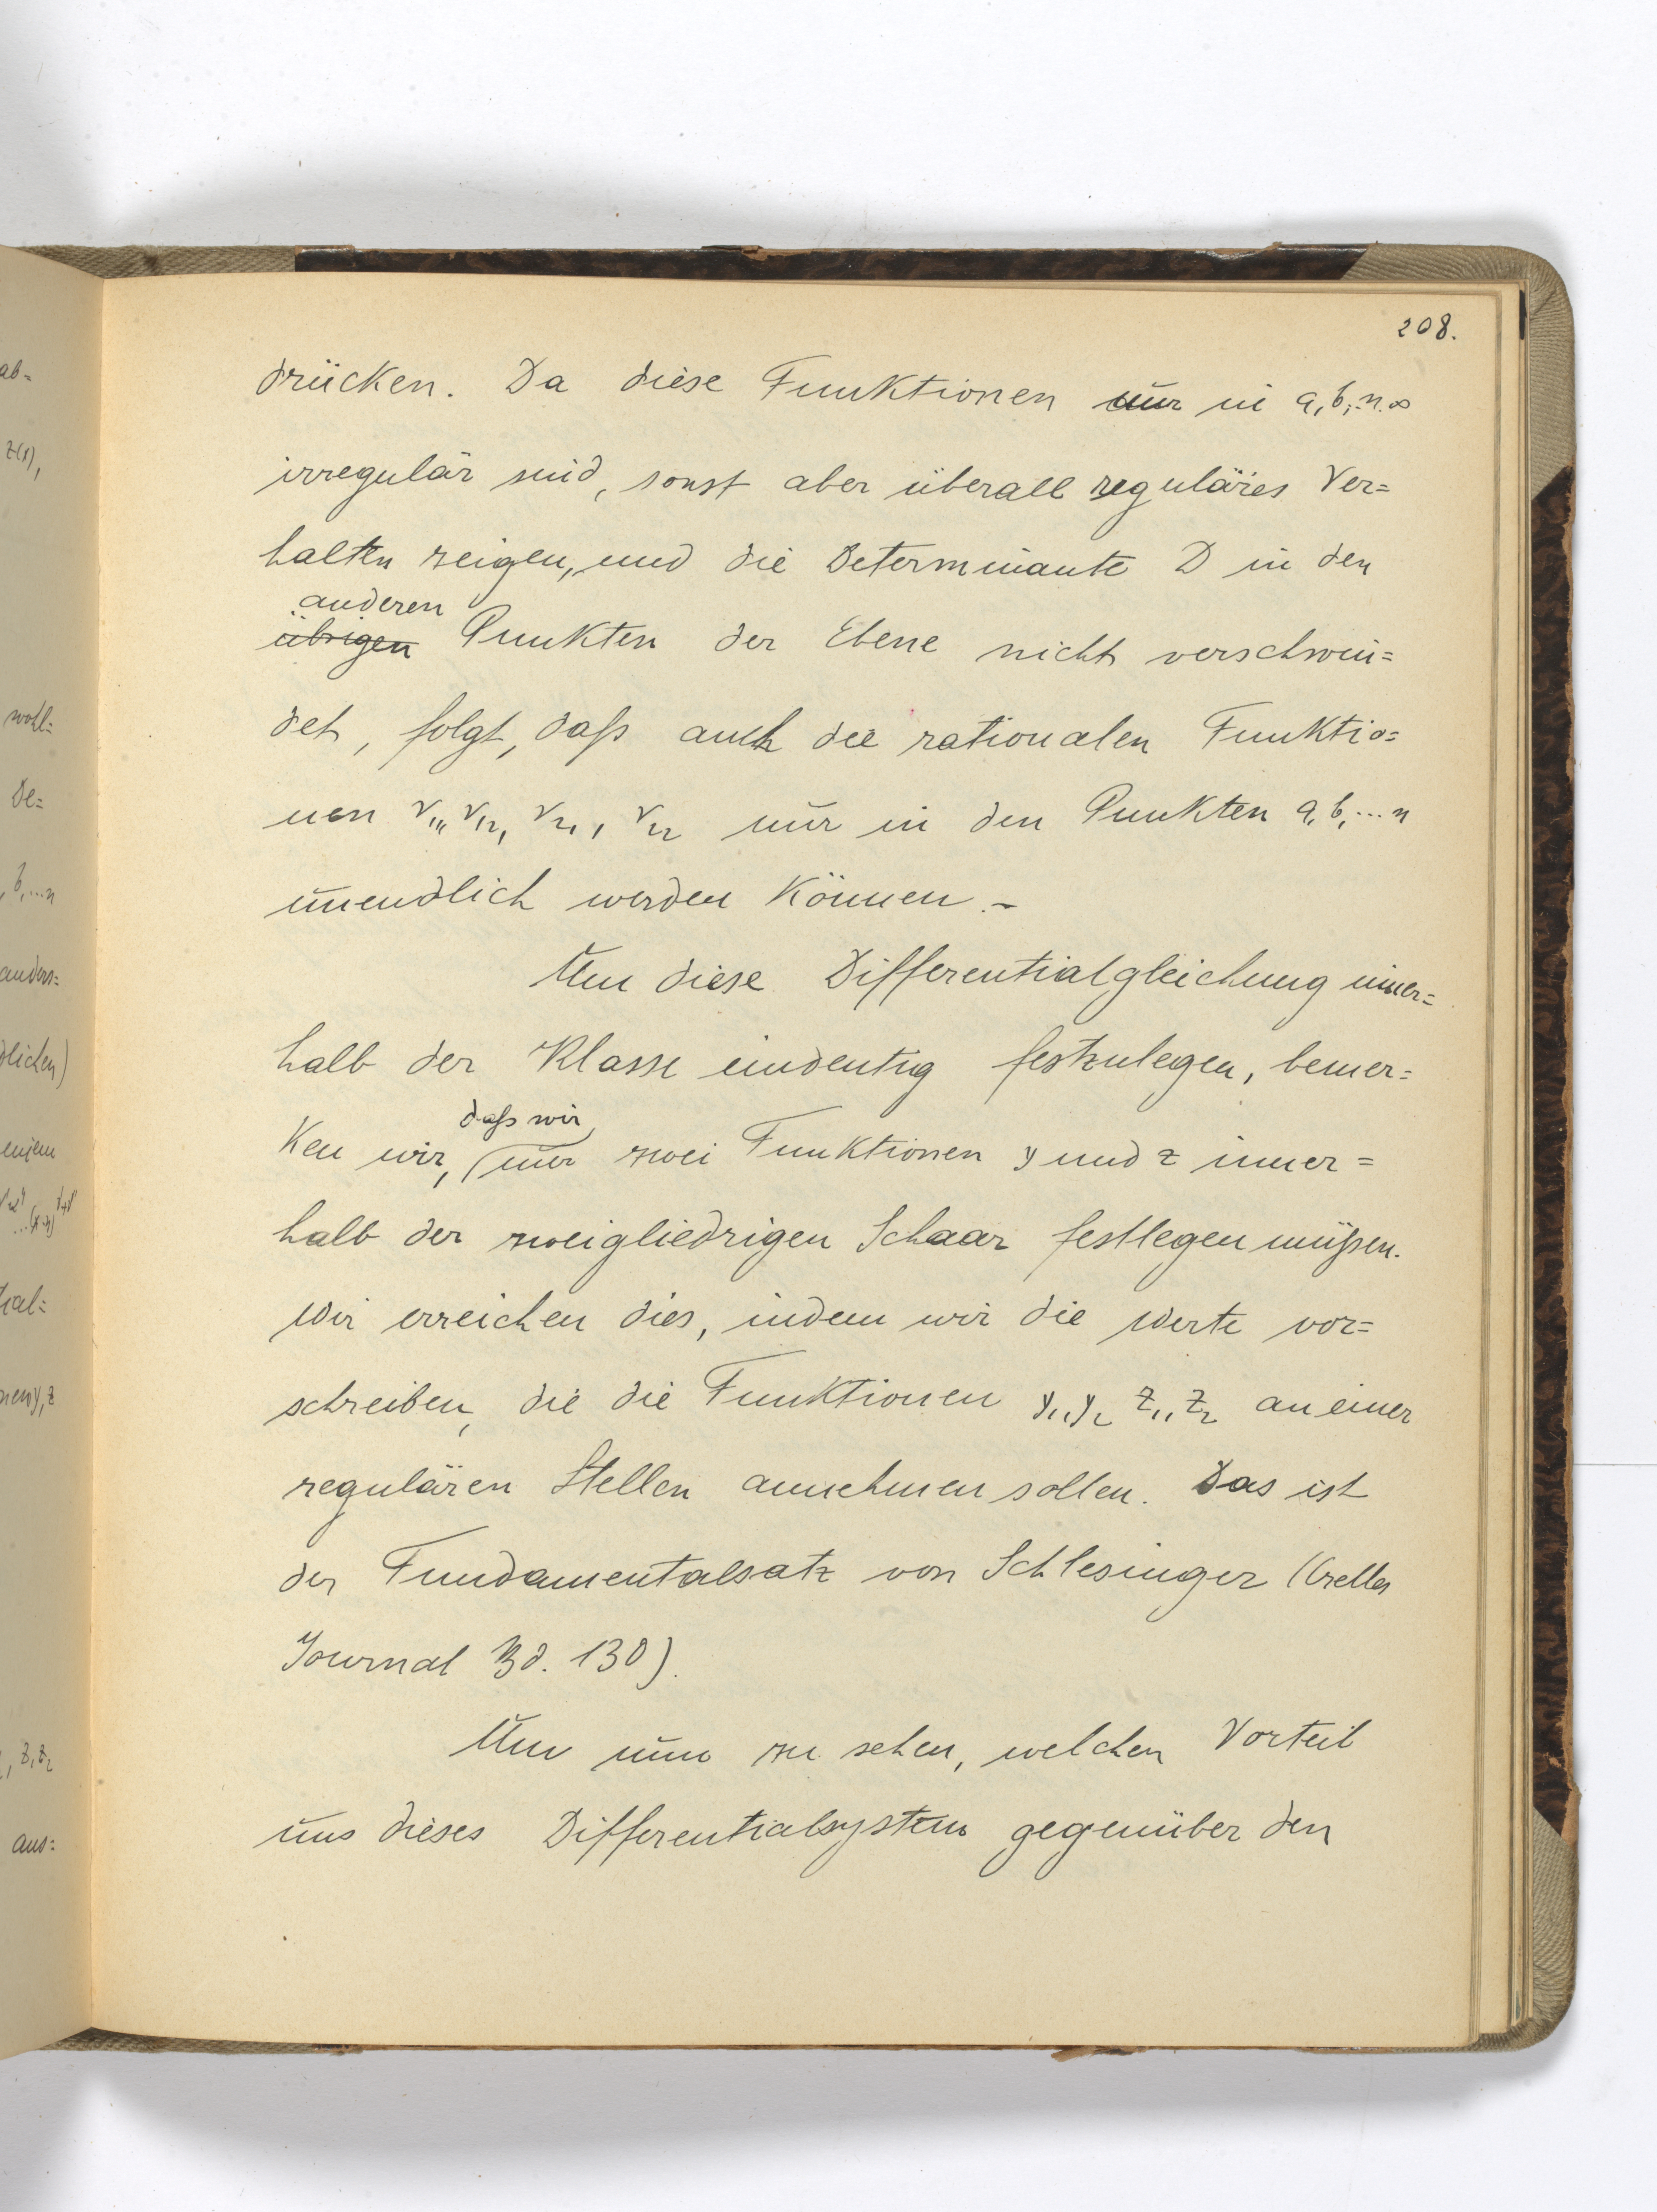 208.
drücken. Da diese Funktionen nur in a, b, .. n. ∞
irregulär sind, sonst aber überall reguläres Ver=
halten zeigen, und die Determinante D in den
anderen
übrigen Punkten der Ebene nicht verschwin=
det, folgt, daß auch die rationalen Funktio=
nen r₁₁, r₁₂, r₂₁, r₂₂ nur in den Punkten a, b, ... n
unendlich werden können. -
Um diese Differentialgleichung inner=
halb der Klasse eindeutig festzulegen, bemer=
daß wir
ken wir, nur zwei Funktionen y und z inner=
halb der zweigliedrigen Schaar festlegen müßen.
Wir erreichen dies, indem wir die Werte vor=
schreiben, die die Funktionen y₁, y₂ z₁, z₂ an einer
regulären Stellen annehmen sollen. Das ist
der Fundamentalsatz von Schlesinger (Crelles
Journal Bd. 130).
Um nun zu sehen, welchen Vorteil
uns dieses Differentialsystem gegenüber den
ab=
z(1),
wohl=
De=
, b, ... n
anders=
dlichen)
einem
tial=
nen y, z
, z₁ z₂
aus=